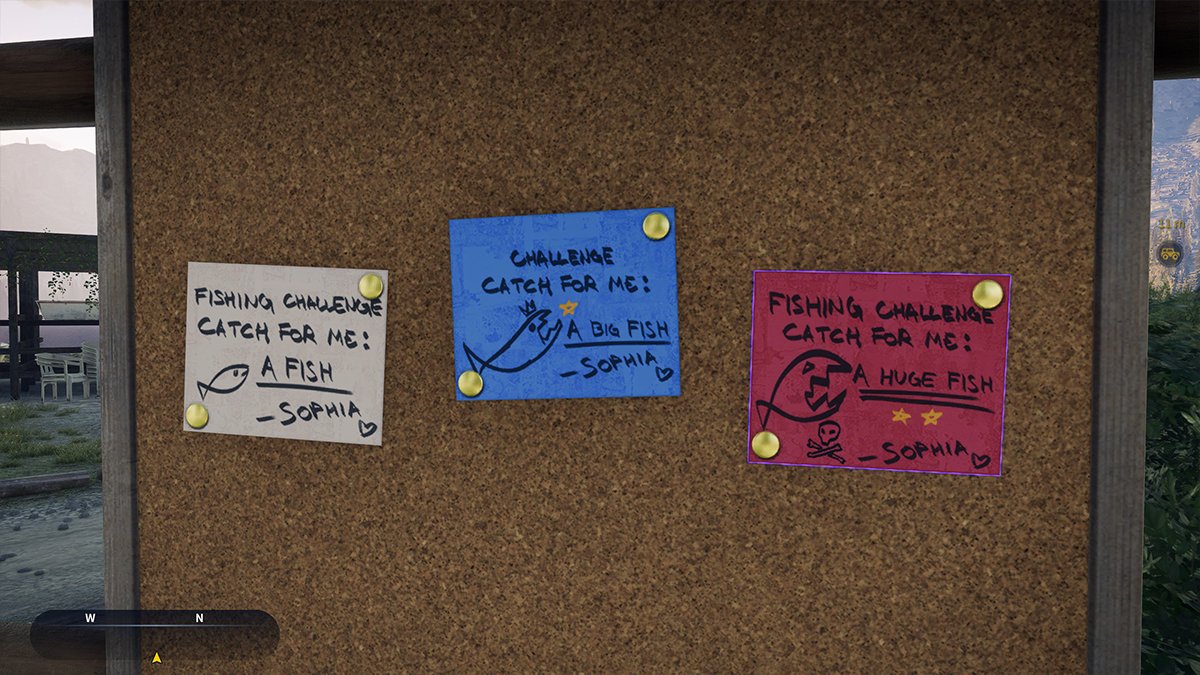 FISHING CHALLENGE
CATCH FOR ME:
A FISH
- SOPHIA
CHALLENGE
CATCH FOR ME:
A BIG FISH
- SOPHIA
FISHING CHALLENGE
CATCH FOR ME:
A HUGE FISH
- SOPHIA
W N